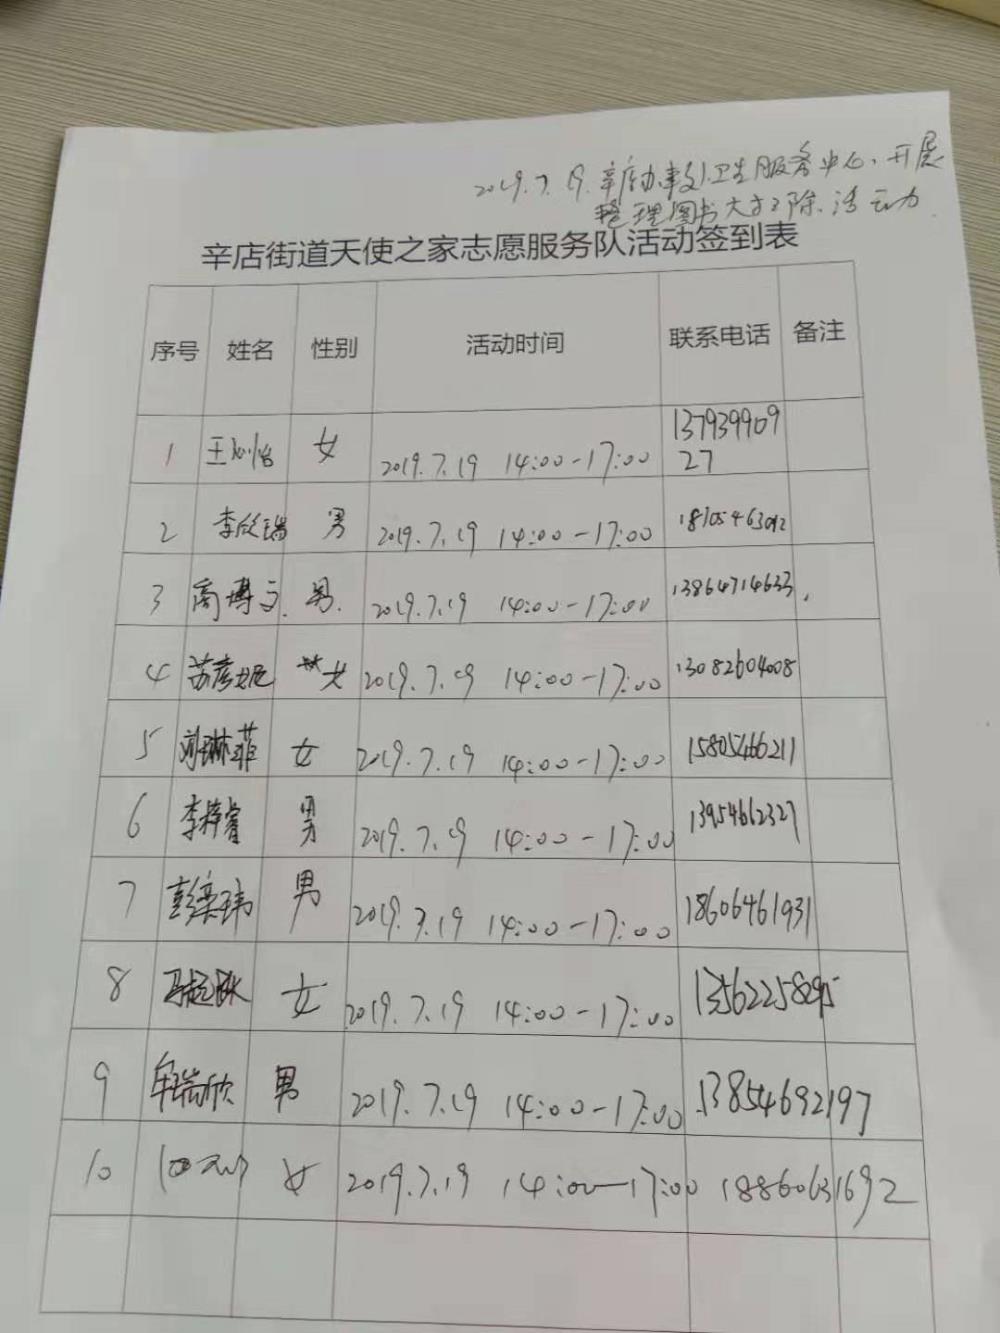 2019.7.19.辛店办事处卫生服务中心、开展
整理图书大扫除活动
辛店街道天使之家志愿服务队活动签到表
序号 姓名 性别 活动时间 联系电话 备注
1 王 女 2019.7.19 14:00-17:00 13793990927
2 李欣瑞 男 2019.7.19 14:00-17:00
3 商博文 男 2019.7.19 14:00-17:00 13864714633
4 苏彦妮 女 2019.7.19 14:00-17:00 13082604008
5 刘琳菲 女 2019.7.19 14:00-17:00 15805466211
6 李梓睿 男 2019.7.19 14:00-17:00 13954662327
7 彭栾玮 男 2019.7.19 14:00-17:00 18606461931
8 马 女 2019.7.19 14:00-17:00
9 牟瑞欣 男 2019.7.19 14:00-17:00 13854692197
10 女 2019.7.19 14:00-17:00 18860631692